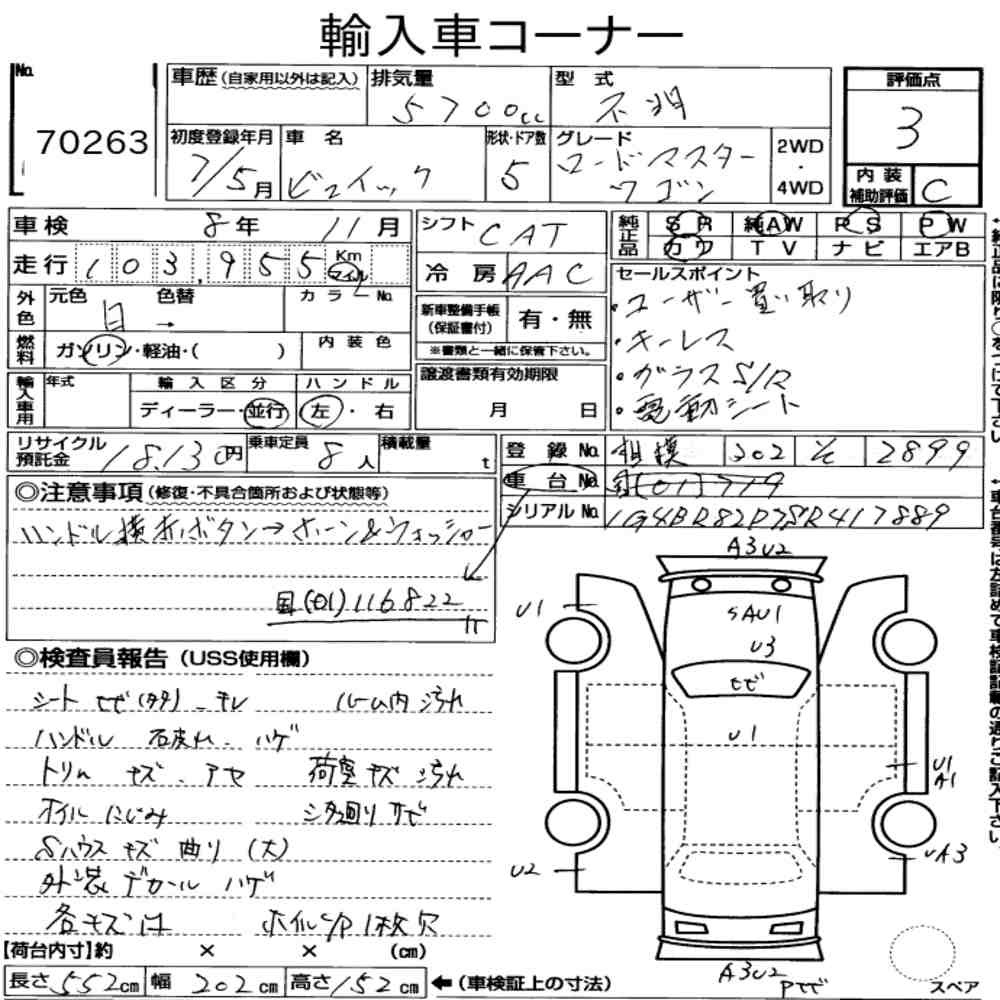 輸入車コーナー
No. 70263
車歴 (自家用以外は記入)
排気量 5700cc
型式 不明
評価点 3
初度登録年月 7/5月
車名 ビュイック
形状・ドア数 5
グレード ロードマスター ワゴン
2WD ・ 4WD
内装補助評価 C
車検 8年 11月
シフト CAT
純正品 SR 純AW PS PW
カワ TV ナビ エアB
走行 103,955 Km マイル
冷房 AAC
セールスポイント
・ユーザー買い取り
・キーレス
・ガラスS/R
・電動シート
外色 元色 白 → 色替 カラーNo.
新車整備手帳 (保証書付) 有・無
※書類と一緒に保管下さい。
燃料 ガソリン・軽油・( ) 内装色
譲渡書類有効期限
月 日
輸入車用 年式 輸入区分 ハンドル
ディーラー・並行 左・右
リサイクル預託金 18.130円 乗車定員 8人 積載量 t
登録No. 相模 302 そ 2899
車台No. 国(01)719
シリアルNo. 1G4BR82P7SR417889
◎注意事項 (修復・不具合箇所および状態等)
ハンドル横赤ボタン→ホーン&ウォッシャー
国(01)116822
◎検査員報告 (USS使用欄)
シート セゼ(タタ)・キレ ルーム内 汚れ
ハンドル 石皮れ・ハゲ
トリム キズ・アセ 荷室キズ 汚れ
オイル にじみ シタ廻りサビ
Sハウス キズ 曲り (大)
外装デカール ハゲ
各キズ凹 ホイルキャP1枚欠
【荷台内寸】約 × × (cm)
長さ 552cm 幅 202cm 高さ 152cm ←(車検証上の寸法)
A3U2
U1
SAU1
U3
セゼ
U1
U1
A1
U2
UA3
A3U2
Pセゼ
スペア